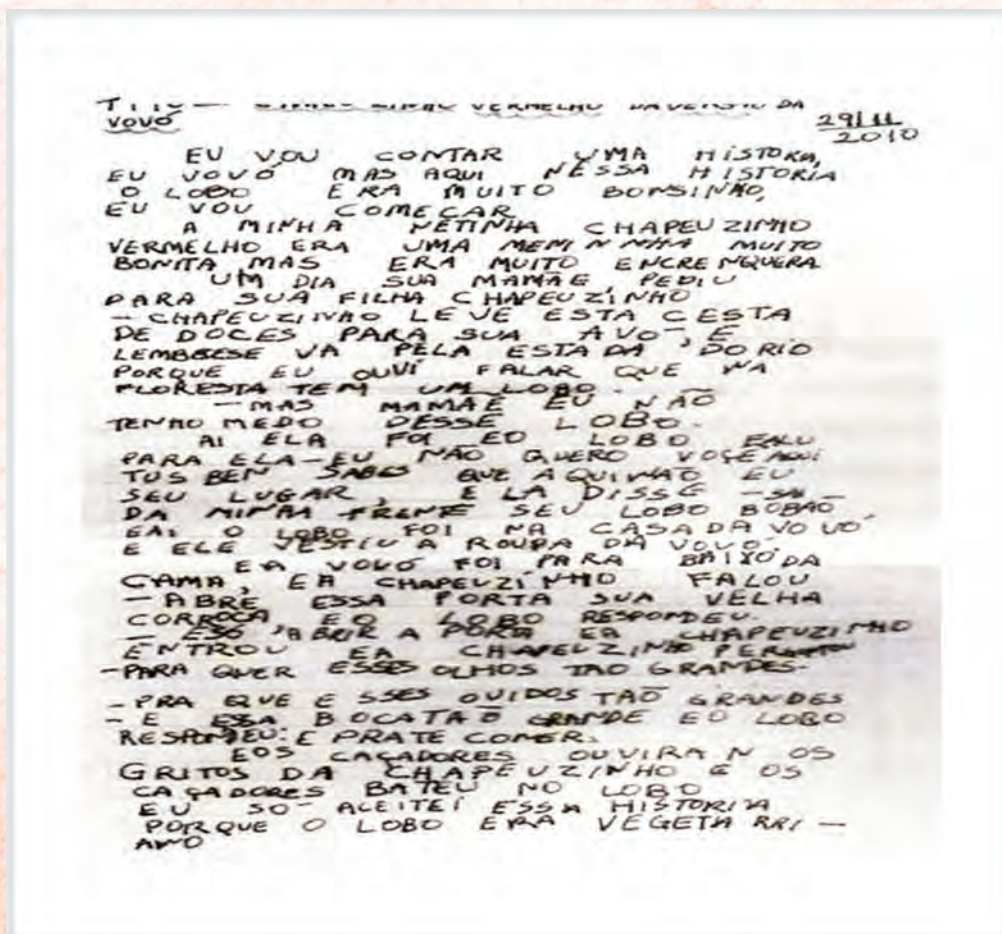 VERMELHO DA
VOVÓ
29/11
2010
EU VOU CONTAR UMA HISTORIA,
EU VOVÓ MAS AQUI NESSA HISTORIA
O LOBO ERA MUITO BONSINHO,
EU VOU COMEÇAR
A MINHA NETINHA CHAPEUZINHO
VERMELHO ERA UMA MEMINNHA MUITO
BONITA MAS ERA MUITO ENCRENQUERA
UM DIA SUA MAMÃE, PEDIU
PARA SUA FILHA CHAPEUZINHO
- CHAPEUZINHO LEVE ESTA CESTA
DE DOCES PARA SUA AVO, E
LEMBRESE VA PELA ESTADA DO RIO
PORQUE EU OUVI FALAR QUE NA
FLORESTA TEM UM LOBO.
- MAS MAMÃE EU NÃO
TENHO MEDO DESSE LOBO.
AI ELA FOI EO LOBO FALU
PARA ELA - EU NÃO QUERO VOSE AQUI
TUS BEN SABES QUE AQUI NÃO EU
SEU LUGAR, ELA DISSE - SAI
DA MINHA FRENTE SEU LOBO BOBÃO
EAI O LOBO FOI NA CASA DA VOVÓ
E ELE VESTIU A ROUPA DA VOVÓ.
EA VOVÓ FOI PARA BAIXO DA
CAMA, EA CHAPEUZINHO FALOU
- ABRE ESSA PORTA SUA VELHA
CORROCA, EO LOBO RESPONDEU.
- ESÓ ABRIR A PORTA EA CHAPEUZINHO
ENTROU EA CHAPEUZINHO
- PARA QUER ESSES OLHOS TAO GRANDES.
- PRA QUE ESSES OUVIDOS TAÕ GRANDES
- E ESSA BOCA TAÕ GRANDE EO LOBO
RESPONDEU: E PRATE COMER.
EOS CAÇADORES OUVIRAN OS
GRITOS DA CHAPEUZINHO E OS
CAÇADORES BATEU NO LOBO
EU SO ACEITEI ESSA HISTORIA
PORQUE O LOBO ERA VEGETARRI -
ANO